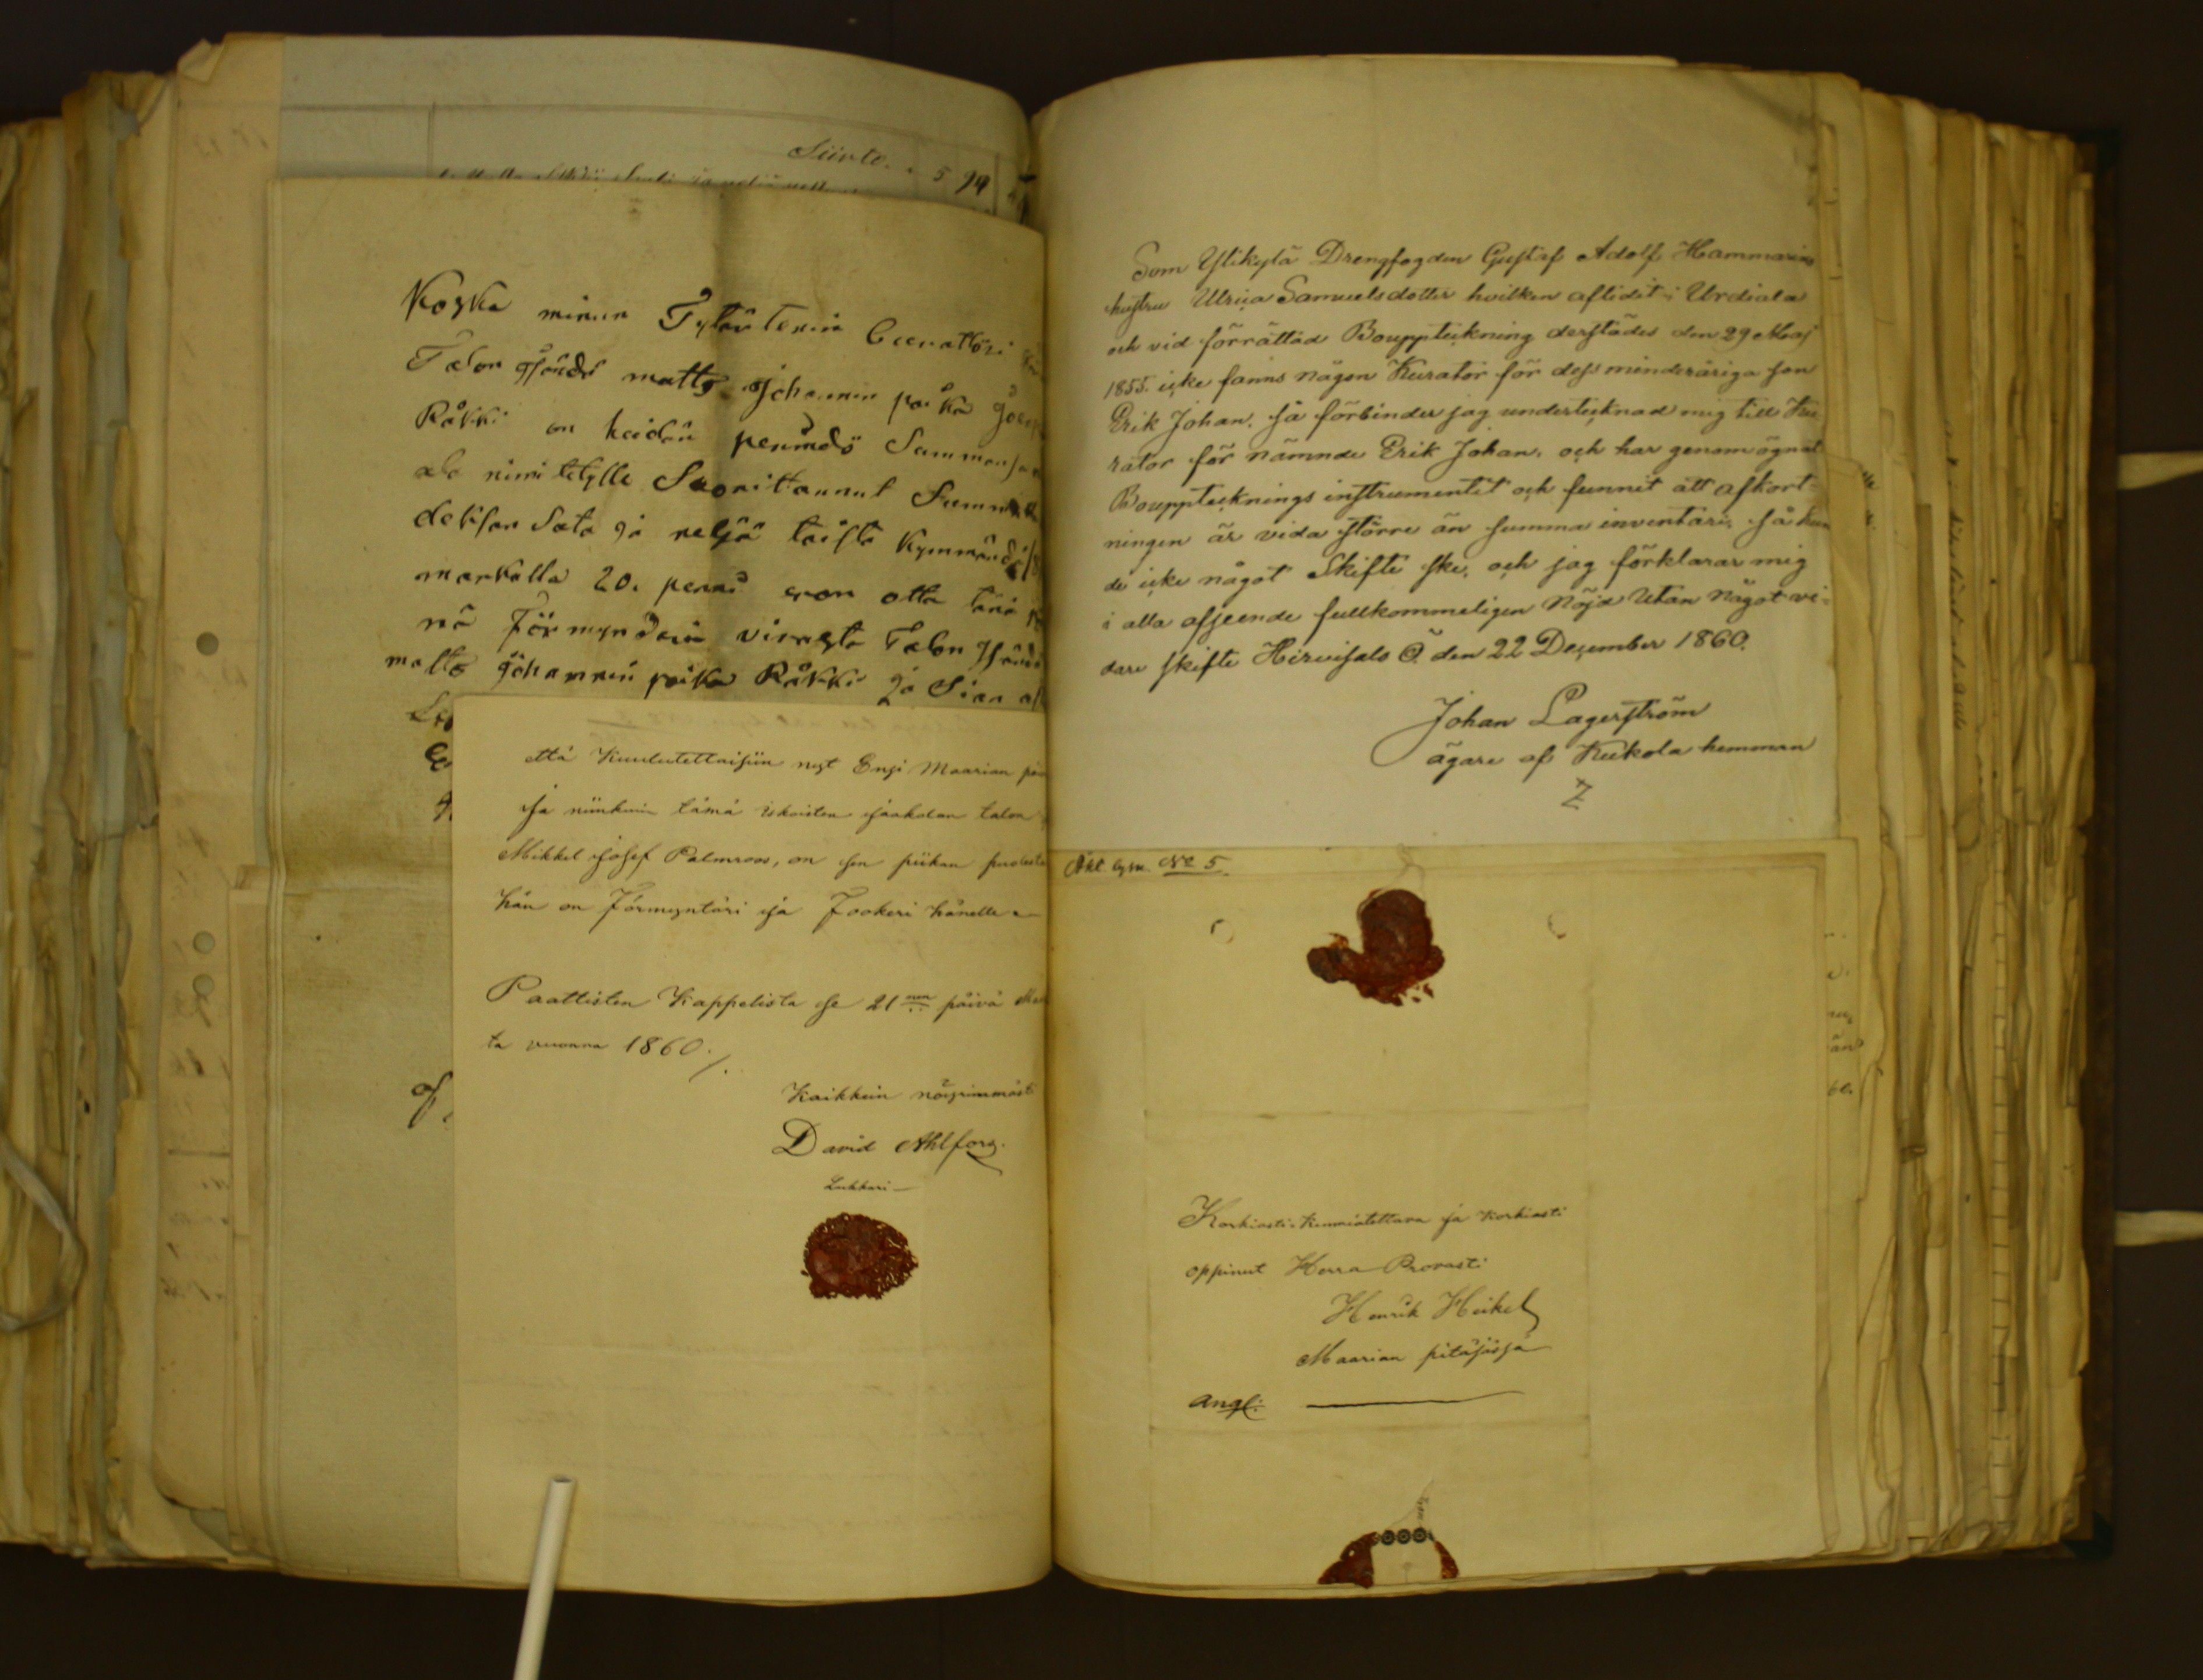 Siirto. 5 94
Koska minun Tytärtenin Curattöri
Talon Isändä matts Johannin poika
Råkki on heidän perindö Summansa
ala nimitetylle Suorittannut Summa
deksan Sata ja neljä toista kymmändä
markalla 20. penni eron otta tänä
nä Förmyndärin virasta Talon Isändä
matts Johannin poika Råkki ja Sian
että Kuulutettaisiin nyt Ensi Maarian
Ja niinkuin tämä iskoisten Jaakolan talon
Mikkel Josef Palmroos, on sen piikan puolesta
hän on Förmyntäri ja Fookeri hänelle
Paattisten Kappelista se 21 nen päivä
ta vuonna 1860./.
Kaikkein nöyrimmästi
David Ahlfors.
Lukkari
Som Ylikylä Drengfogden Gustaf Adolf Hammarins
hustru Ulrica Samuelsdotter hvilken aflidit i Urdiala
och vid förrättad Bouppteckning derstädes den 29 Maj
1855. icke fanns någon Kurator för dess minderåriga son
Erik Johan. så förbinder jag undertecknad mig till Ku-
rator för nämnde Erik Johan. och har genomögnat
Bouppteckningsinstrumentet och funnit att afkort-
ningen är vida större än summa inventari, så kun
de icke något Skifte ske, och jag förklarar mig
i alla afseende fullkommeligen Nöjd utan något vi-
dare skifte Hirvisalo Ö. den 22 December 1860.
Johan Lagerström
ägare af Kukola hemman
Åkt. lysn. No 5.
Korkiasti-Kunnioitettava ja korkiasti
oppinut Herra Provasti
Henrik Heikel
Maarian pitäjäsä
Angl: